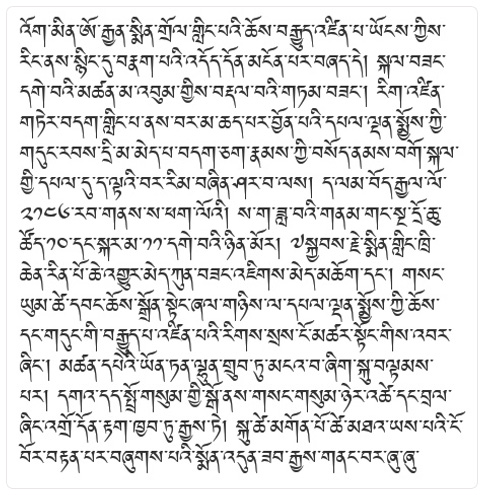 འོག་མིན་ཨོ་རྒྱན་སྨིན་གྲོལ་གླིང་པའི་ཆོས་བརྒྱུད་འཛིན་པ་ཡོངས་ཀྱིས་
རིང་ནས་སྙིང་དུ་བརྣག་པའི་འདོད་དོན་མངོན་པར་བཞད་དེ། སྐལ་བཟང་
དགེ་བའི་མཚན་མ་འབུམ་གྱིས་བརྡལ་བའི་གཏམ་བཟང་། རིག་འཛིན་
གཏེར་བདག་གླིང་པ་ནས་བར་མ་ཆད་པར་བྱོན་པའི་དཔལ་ལྡན་སྨྱོས་ཀྱི་
གདུང་རབས་དྲི་མ་མེད་པ་བདག་ཅག་རྣམས་ཀྱི་བསོད་ནམས་བགོ་སྐལ་
གྱི་དཔལ་དུ་ད་ལྟའི་བར་རིམ་བཞིན་ཤར་བ་ལས། ད་ལམ་བོད་རྒྱལ་ལོ་
༢༡༤༦་རབ་གནས་ས་ཕག་ལོའི། ས་ག་ཟླ་བའི་གནམ་གང་སྔ་དྲོ་ཆུ་
ཚོད་༡༠་དང་སྐར་མ་༡༡་དགེ་བའི་ཉིན་མོར། ༧སྐྱབས་རྗེ་སྨིན་གླིང་ཁྲི་
ཆེན་རིན་པོ་ཆེ་འགྱུར་མེད་ཀུན་བཟང་འཇིགས་མེད་མཆོག་དང་། གསང་
ཡུམ་ཚེ་དབང་ཆོས་སྒྲོན་སྟེང་ཞལ་གཉིས་ལ་དཔལ་ལྡན་སྨྱོས་ཀྱི་ཆོས་
དང་གདུང་གི་བརྒྱུད་པ་འཛིན་པའི་རིགས་སྲས་ངོ་མཚར་སྟོང་གིས་འབར་
ཞིང་། མཚན་དཔེའི་ཡོན་ཏན་ལྷུན་གྲུབ་ཏུ་མངའ་བ་ཞིག་སྐུ་བལྟམས་
པར། དགའ་དད་སྤྲོ་གསུམ་གྱི་སྒོ་ནས་གསང་གསུམ་ཉེར་འཚེ་དང་བྲལ་
ཞིང་འགྲོ་དོན་རྟག་ཁྱབ་ཏུ་རྒྱས་ཏེ། སྐུ་ཚེ་མགོན་པོ་ཚེ་མཐའ་ཡས་པའི་ངོ་
བོར་བརྟན་པར་བཞུགས་པའི་སྨོན་འདུན་ཟབ་རྒྱས་གནང་བར་ཞུ་ཞུ་